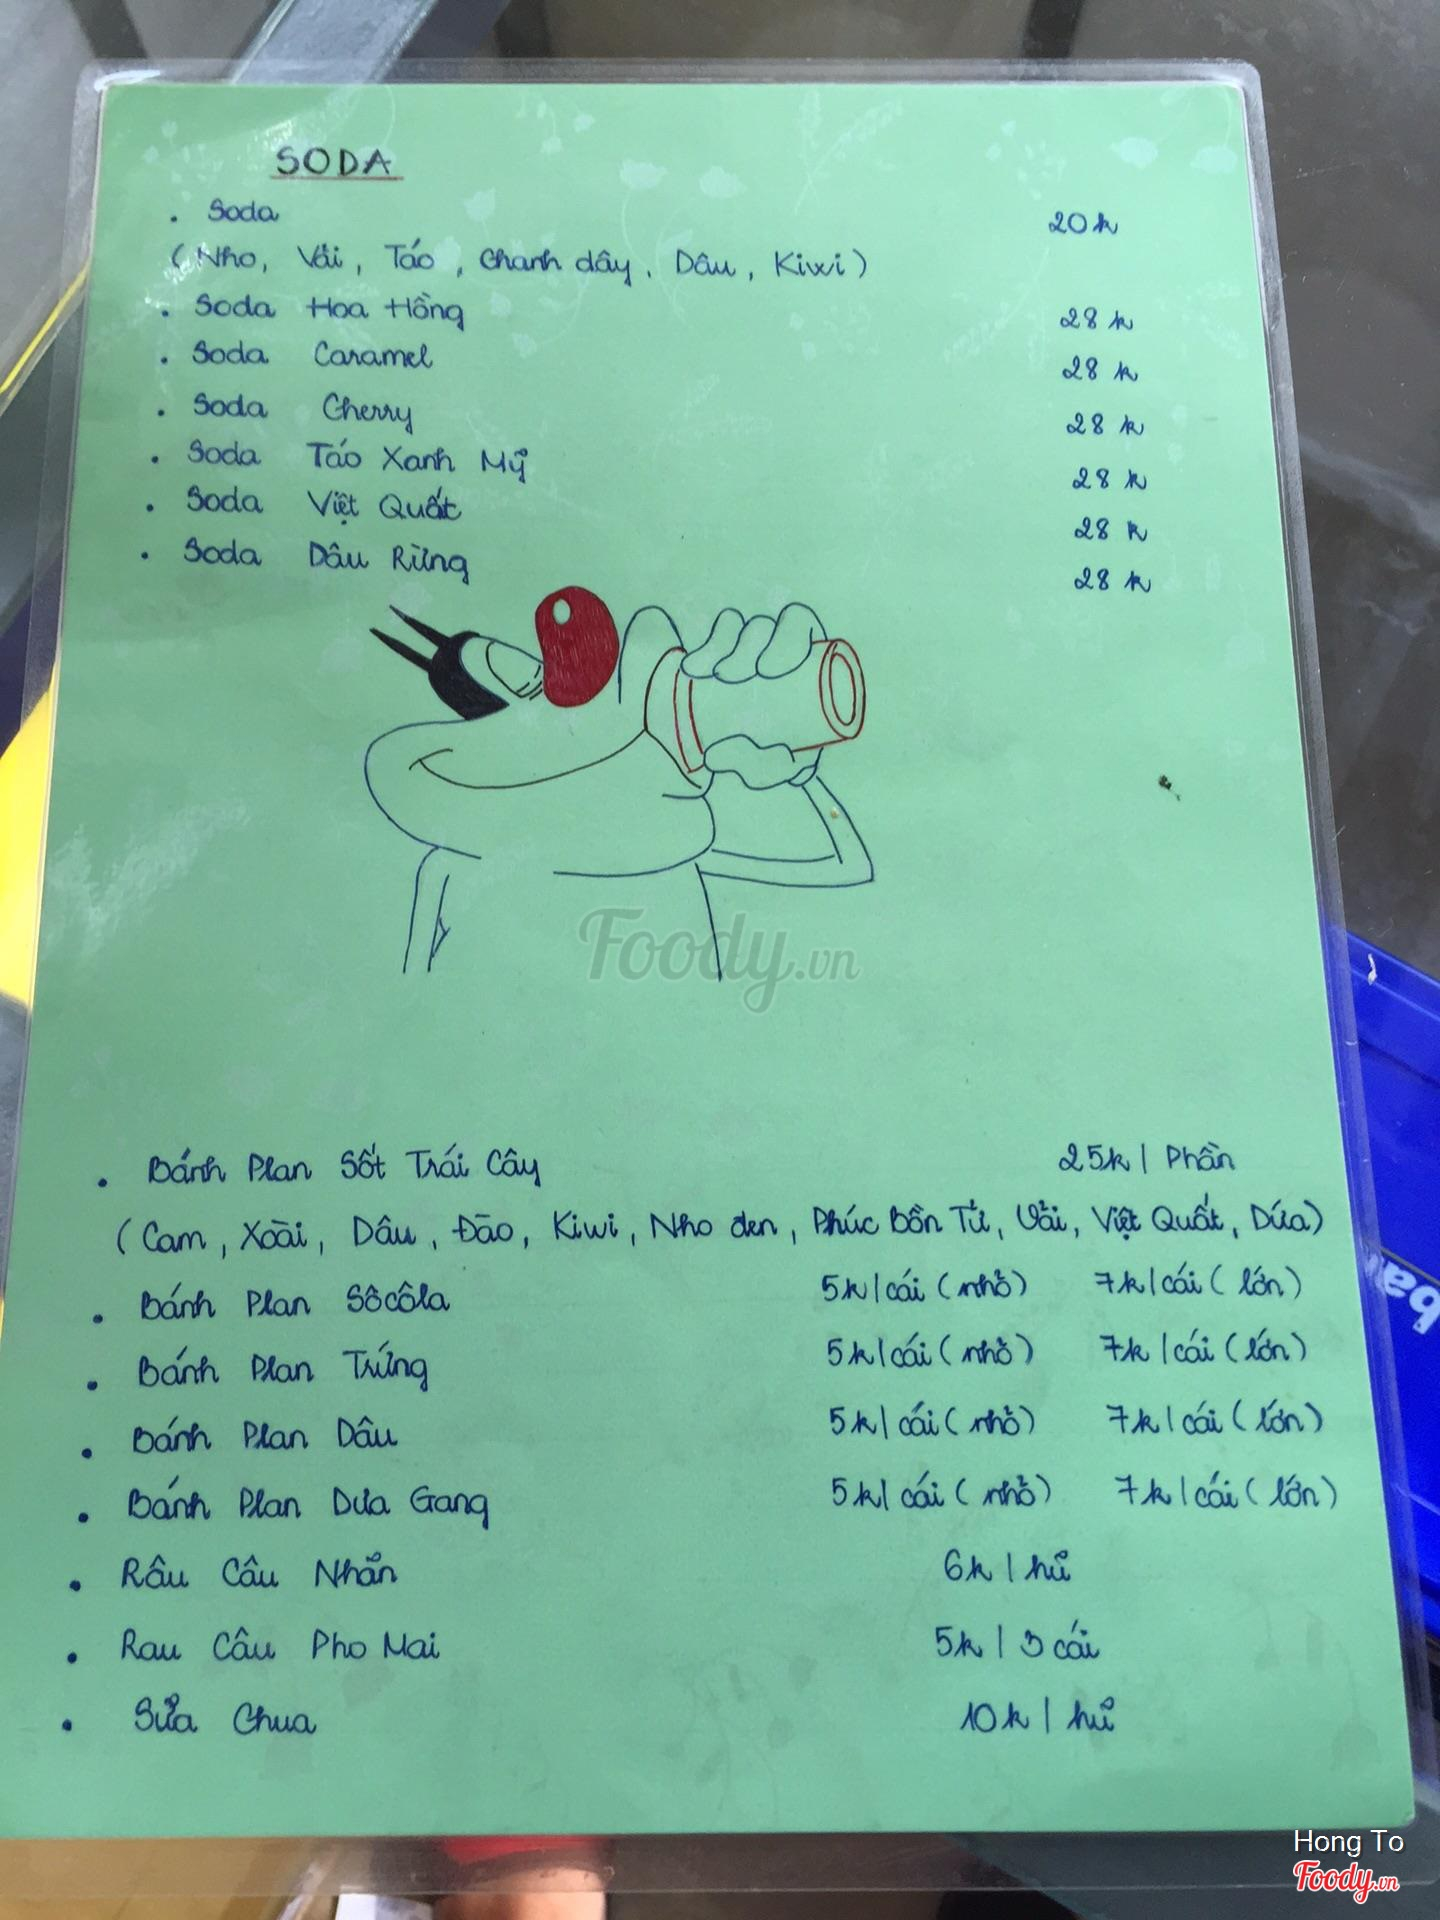 SODA
. Soda 20k
(Nho, Vải, Táo, Chanh dây, Dâu, Kiwi)
. Soda Hoa Hồng 28k
. Soda Caramel 28k
. Soda Cherry 28k
. Soda Táo Xanh Mỹ 28k
. Soda Việt Quất 28k
. Soda Dâu Rừng 28k
Foody.vn
. Bánh Plan Sốt Trái Cây 25k | Phần
(Cam, Xoài, Dâu, Đào, Kiwi, Nho đen, Phúc Bồn Tử, Vải, Việt Quất, Dứa)
. Bánh Plan Sôcôla 5k | cái (nhỏ) 7k | cái (lớn)
. Bánh Plan Trứng 5k | cái (nhỏ) 7k | cái (lớn)
. Bánh Plan Dâu 5k | cái (nhỏ) 7k | cái (lớn)
. Bánh Plan Dưa Gang 5k | cái (nhỏ) 7k | cái (lớn)
. Râu Câu Nhãn 6k | hủ
. Rau Câu Pho Mai 5k | 3 cái
. Sửa Chua 10k | hủ
Hong To
Foody.vn